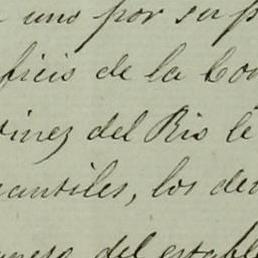 uno por su
ficis de la Con
tinez del Rio le
cantiles, los de
del establ